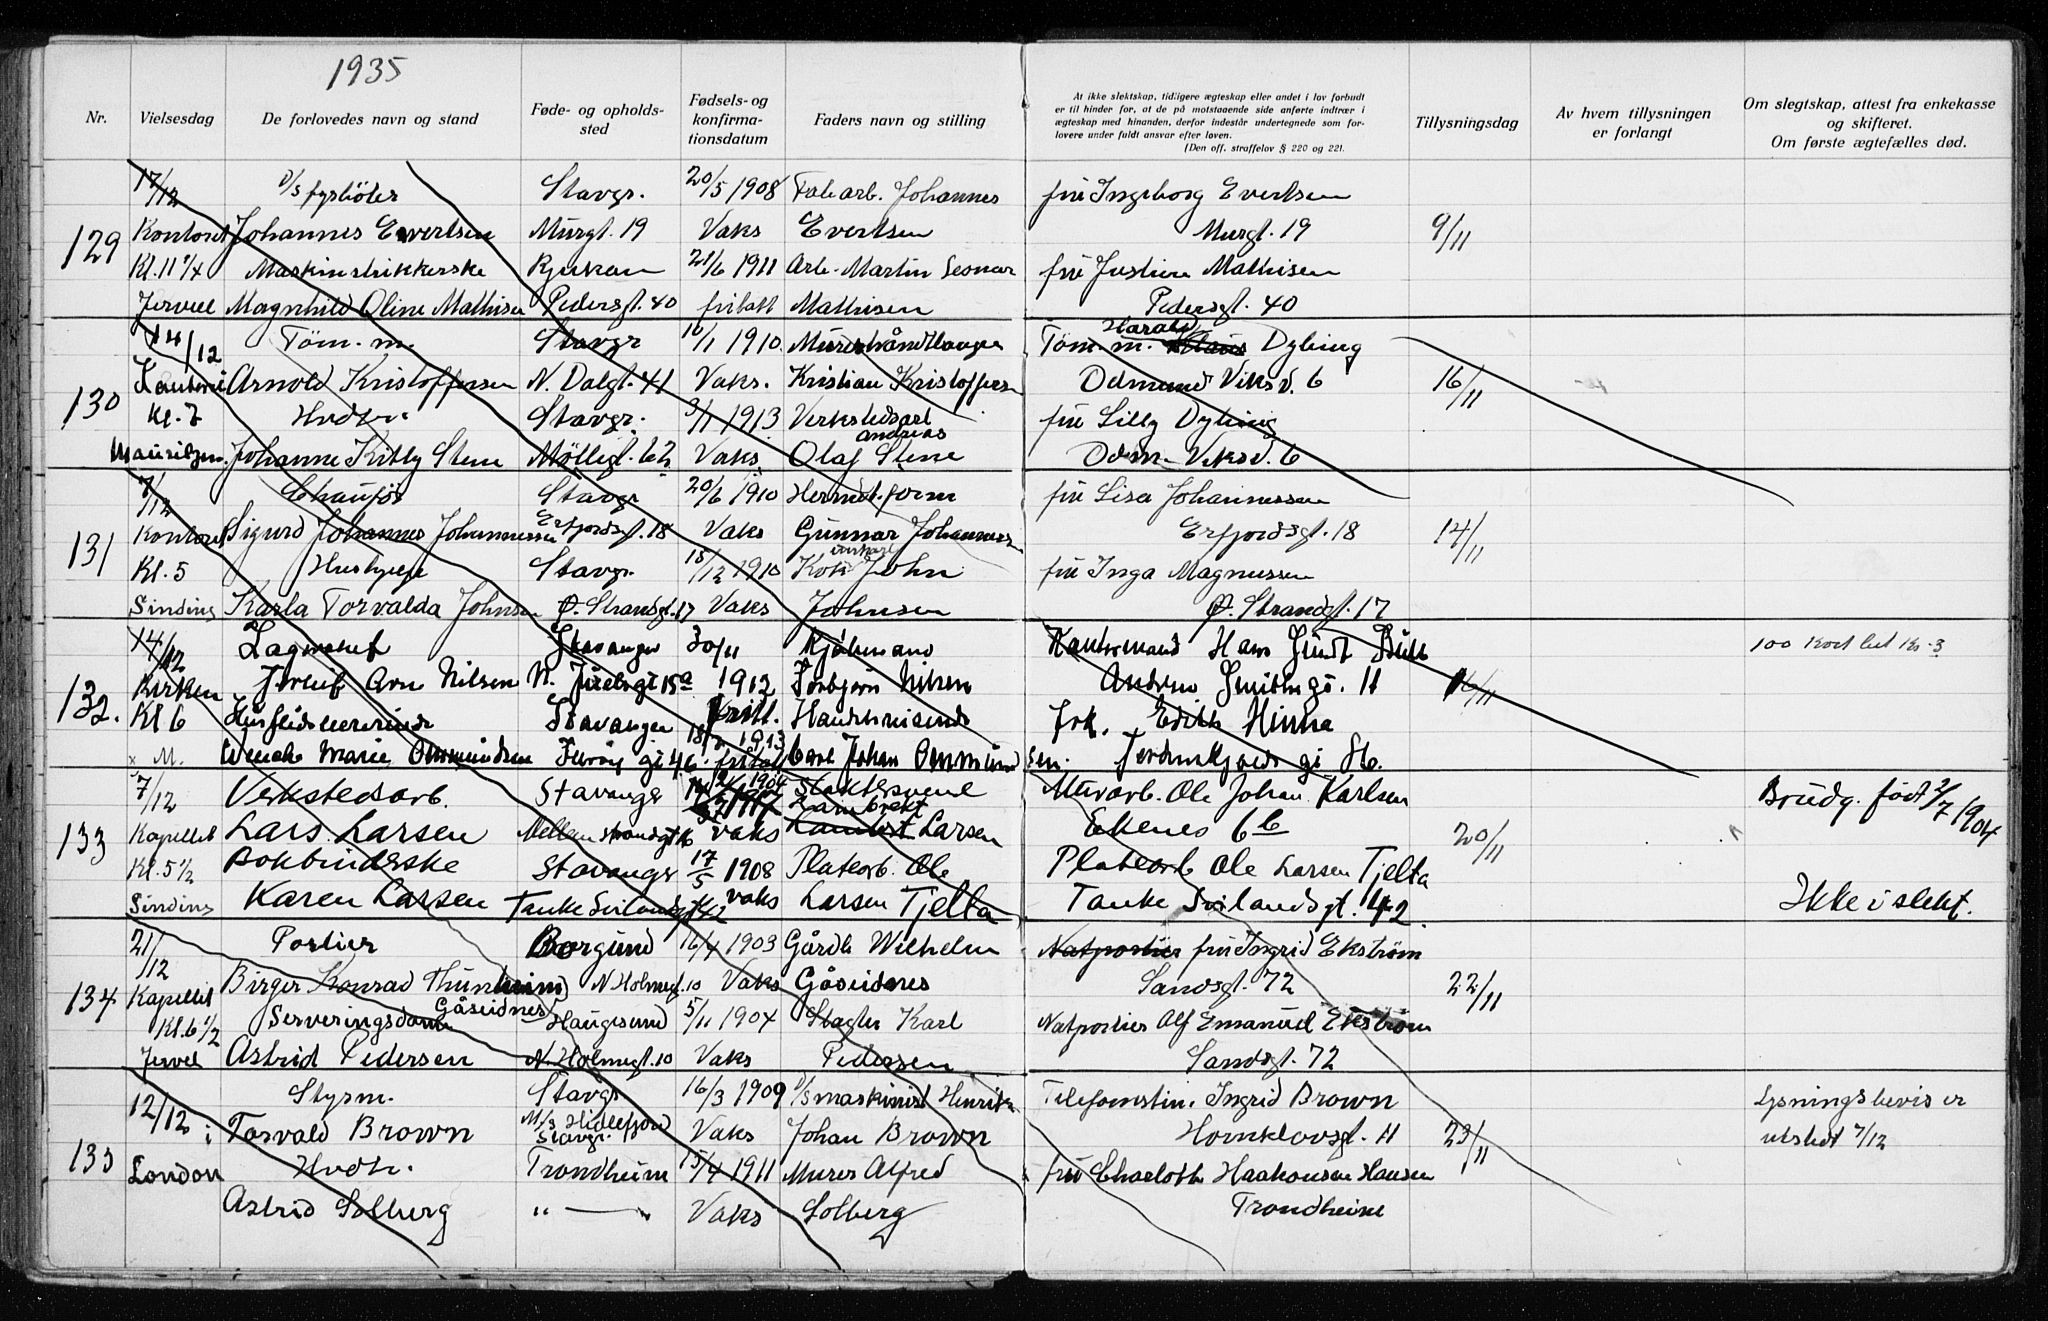 1935
Nr.
Vielsesdag
De forlovedes navn og stand
Føde- og opholds-
sted
Fødsels- og
konfirma-
tionsdatum
Faders navn og stilling
At ikke slektskap, tidligere ægteskap eller andet i lov forbudt
er til hinder for, at de på motstaaende side anførte indtrær i
ægteskap med hinanden, derfor indestår undertegnede som for-
lovere under fuldt ansvar efter loven.
(Den off. straffelov § 220 og 221.
Tillysningsdag
Av hvem tillysningen
er forlangt
Om slegtskap, attest fra enkekasse
og skifteret.
Om første ægtefælles død.
17/12 D/s fyrbøter Stavgr. 20/5 1908 Fabarb. Johannes fru Ingeborg Evertsen
129 Kontoret Johannes Evertsen Murgt. 19 Vaks Evertsen Murgt. 19 9/11
Kl. 11 1/4 Maskinstrikkerske Rjukan 21/6 1911 Arb. Martin Leonar fru Justine Mathisen
Jervell Magnhild Oline Mathisen Pedersgt. 40 fritatt Mathisen Pedersgt. 40
14/12 Töm. m. Stavgr 16/1 1910 Murerhåndlanger Töm. m. Harald Dybing
130 Arnold Kristoffersen N. Dalgt. 41 Vaks. Kristian Kristoffersen Odmund Viksv. 6 16/11
Kl. 7 Husm. Stavgr. 3/1 1913 Verkstedsarb fru Lilly Dybing
Mauritzen. Johanne Kitty Stene Möllegt. 62 Vaks Olaf Andreas Stene Odm. Viksv. 6
7/12 Chauför Stavgr 20/6 1910 Hermet. form fru Lisa Johannessen
131 Kontoret Sigurd Johannes Johannessen Erfjordsgt. 18 Vaks Gunnar Johannessen Erfjordsgt. 18 14/11
Kl. 5 Hushjelp Stavgr. 18/12 1910 Kok John fru Inga Magnussen
Sinding Karla Torvalda Johnsen Ø. Strandgt. 17 Vaks Johnsen Ø. Strandgt. 17
14/12 Lagersjef Stavanger 30/11 Kjöbmand Hans 100 kort
132. Kirken Arn Nilsen 15a 1912 Torbjörn Nilsen Andreas Smithsgt. 11 16/11
Kl 6 Stavanger fritt. frk. Edith Hinna
M. Wenche Marie Ommundsen 18/2 1913 fritatt Carl Johan Ommundsen.
7/12 Verkstedsarb. Stavanger 2/7 1904 Slaktersvend Murarb. Ole Johan Karlsen Brudg. født 2/7 1904
133 Kapellet Lars Larsen Mellemstrandgt 16 vaks Larsen Ekenes 6b 20/11
Kl. 5 1/2 Bokbinderske Stavanger 17/5 1908 Platearb. Ole Platearb Ole Larsen Tjelta
Sinding Karen Larsen Tanke Svilandsgt 42 vaks Larsen Tjelta Tanke Svilandsgt. 42 Ikke i slekt.
21/12 Portier Borgund 16/4 1903 Gårdb Wilhelm Natportier fru Ingrid Ekström
134 Kapellet Birger Konrad Thunheim Gåseidnes N Holmegt. 10 Vaks Gåseidnes Sandsgt. 72 22/11
Kl. 6 1/2 Serveringsdame Haugesund 5/11 1904 Slagter Karl Natportier Alf Emanuel Ekström
Jervell Astrid Pedersen N. Holmegt. 10 Vaks Pedersen Sandsgt. 72
12/12 Styrm. Stavgr 16/3 1909 D/s maskinist Henrik Telefonistin. Ingrid Brown Lysningsbevis er
135 i Torvald Brown M/s Hidlefjord Stavgr. Vaks Johan Brown Hornklovsgt. 11 23/11 utstedt 7/12
London Husm. Trondheim 15/4 1911 Murer Alfred fru Charlotte Haakonsen Hansen
Astrid Solberg " — Vaks Solberg Trondheim